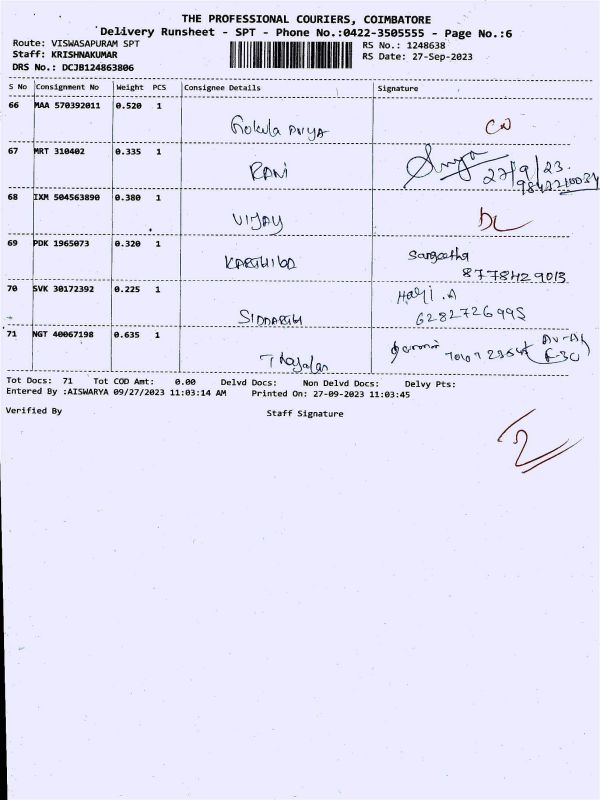 THE PROFESSIONAL COURIERS, COIMBATORE
Delivery Runsheet - SPT - Phone No.:0422-3505555 - Page No.:6
Route: VISWASAPURAM SPT RS No.: 1248638
Staff: KRISHNAKUMAR RS Date: 27-Sep-2023
DRS No.: DCJB124863806
S No Consignment No Weight PCS Consignee Details Signature
66 MAA 570392011 0.520 1
Gokula Priya
67 MRT 310402 0.335 1
RANI 27/9/23
68 IXM 504563890 0.380 1
VIJAY DL
69 PDK 1965073 0.320 1 Sangeetha
8778429013
70 SVK 30172392 0.225 1 Hari .A
SIDDARTH 6282726995
71 NGT 40067198 0.635 1
Tot Docs: 71 Tot COD Amt: 0.00 Delvd Docs: Non Delvd Docs: Delvy Pts:
Entered By :AISWARYA 09/27/2023 11:03:14 AM Printed On: 27-09-2023 11:03:45
Verified By Staff Signature
2